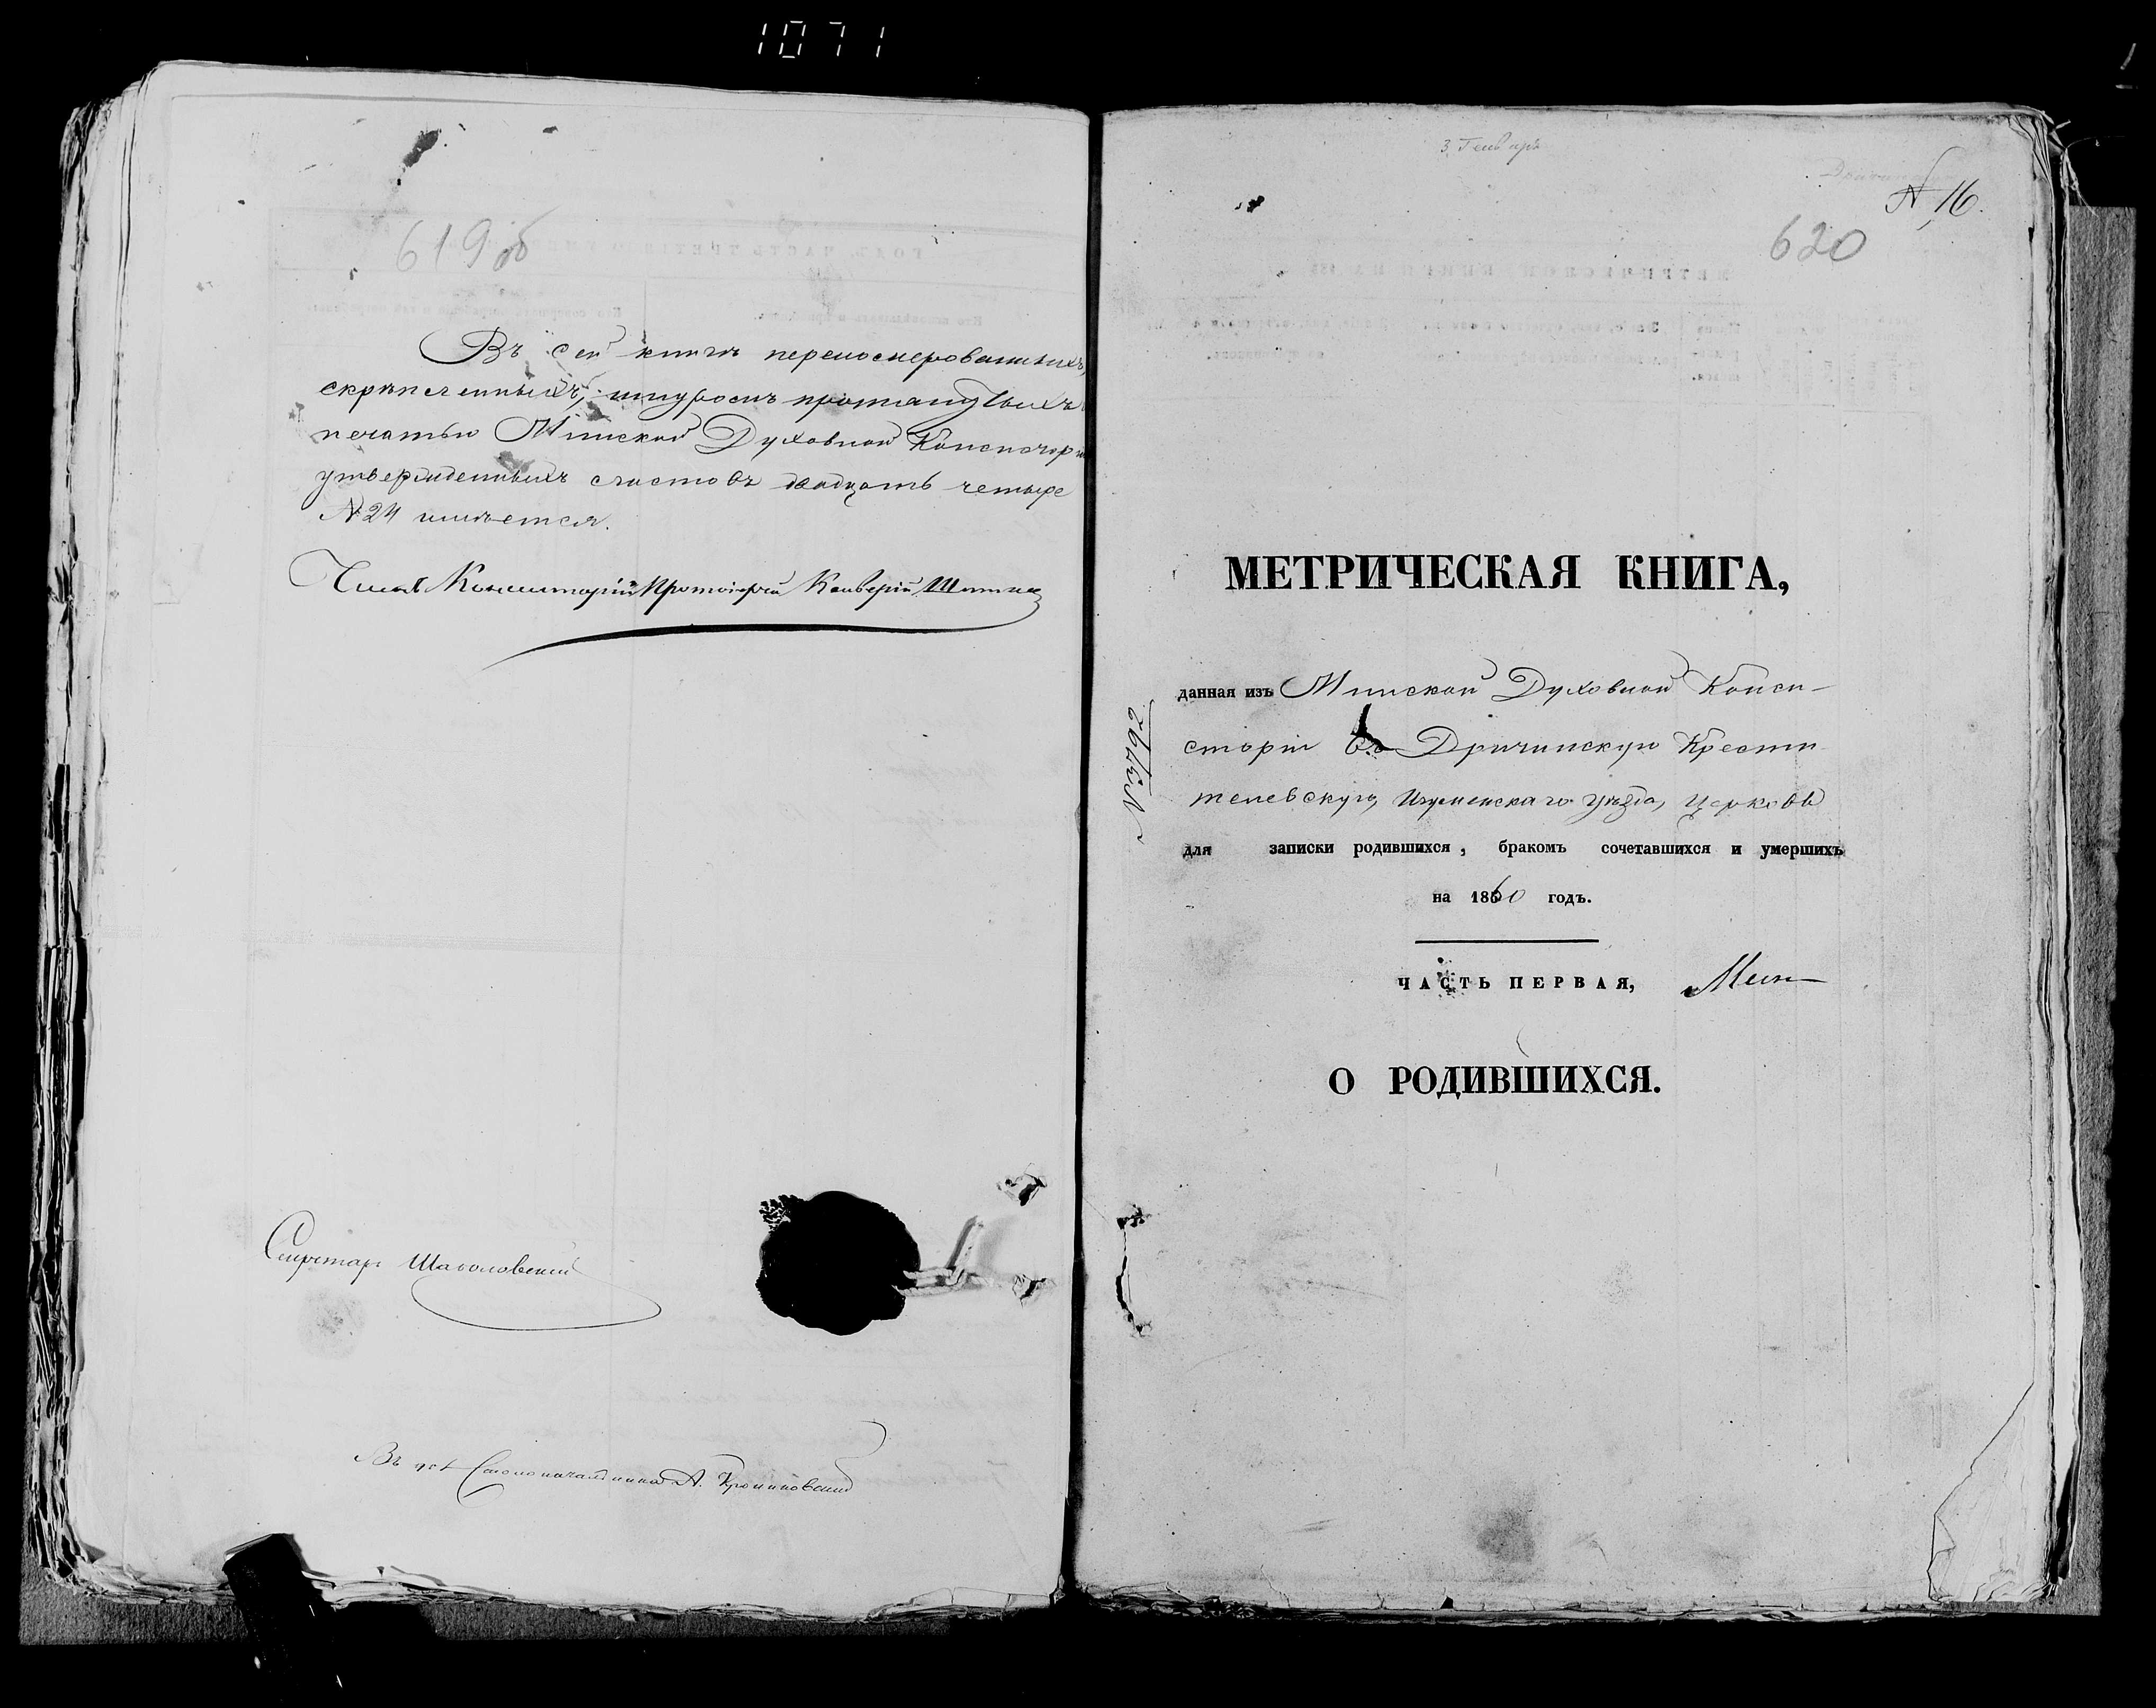 1071
619 об
Въ сей книгѣ переномерованныхъ,
скрѣпленныхъ, шнуромъ протянутыхъ
печатью Минской Духовной Консисторіи
утвержденныхъ листовъ двадцать четыре
№ 24 имѣется.
Членъ Консисторіи Протоіерей
Секретарь
Въ дол. Столоначальника А.
3. Генварь
№ 16.
620
МЕТРИЧЕСКАЯ КНИГА,
данная изъ Минской ДуховнойКонси-
сторіи въ Дричинскую Крести
телевскую, Игуменскаго уѣзда, церковь
для записки родившихся, бракомъ сочетавшихся и умершихъ
на 1860 годъ.
ЧАСТЬ ПЕРВАЯ,
О РОДИВШИХСЯ.